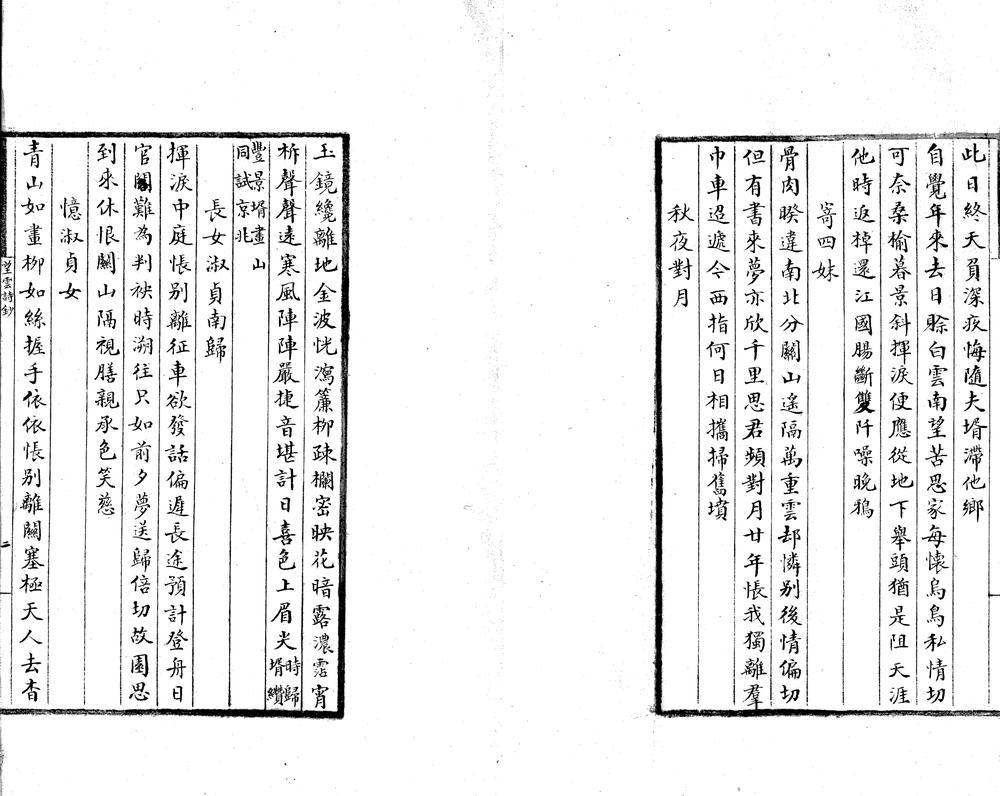 此日終天員深疚悔隨夫壻滯他鄉
自覺年來去日賒白雲南望苦思家每懷烏鳥私情切
可奈桑榆暮景斜揮淚便應從地下舉頭猶是阻天涯
他時返棹還江國腸斷雙阡噪晚鴉
寄四妹
骨肉睽違南北分關山遙隔萬重雲却憐別後情偏切
但有書來夢亦欣千里思君頻對月廿年悵我獨離羣
巾車迢遞今西指何日相攜掃舊墳
秋夜對月
玉鏡纔離地金波恍瀉簾柳疎欄密映花暗露濃霑宵
柝聲聲遠寒風陣陣嚴捷音堪計日喜色上眉尖時歸壻纘
豐景壻畫山同試京兆
長女淑貞南歸
揮淚中庭悵別離征車欲發話偏遲長途預計登舟日
官閣難為判袂時溯往只如前夕夢送歸倍切故園思
到來休恨關山隔視膳親承色笑慈
憶淑貞女
青山如畫柳如絲握手依依悵別離關塞極天人去杳
望雲詩鈔
二